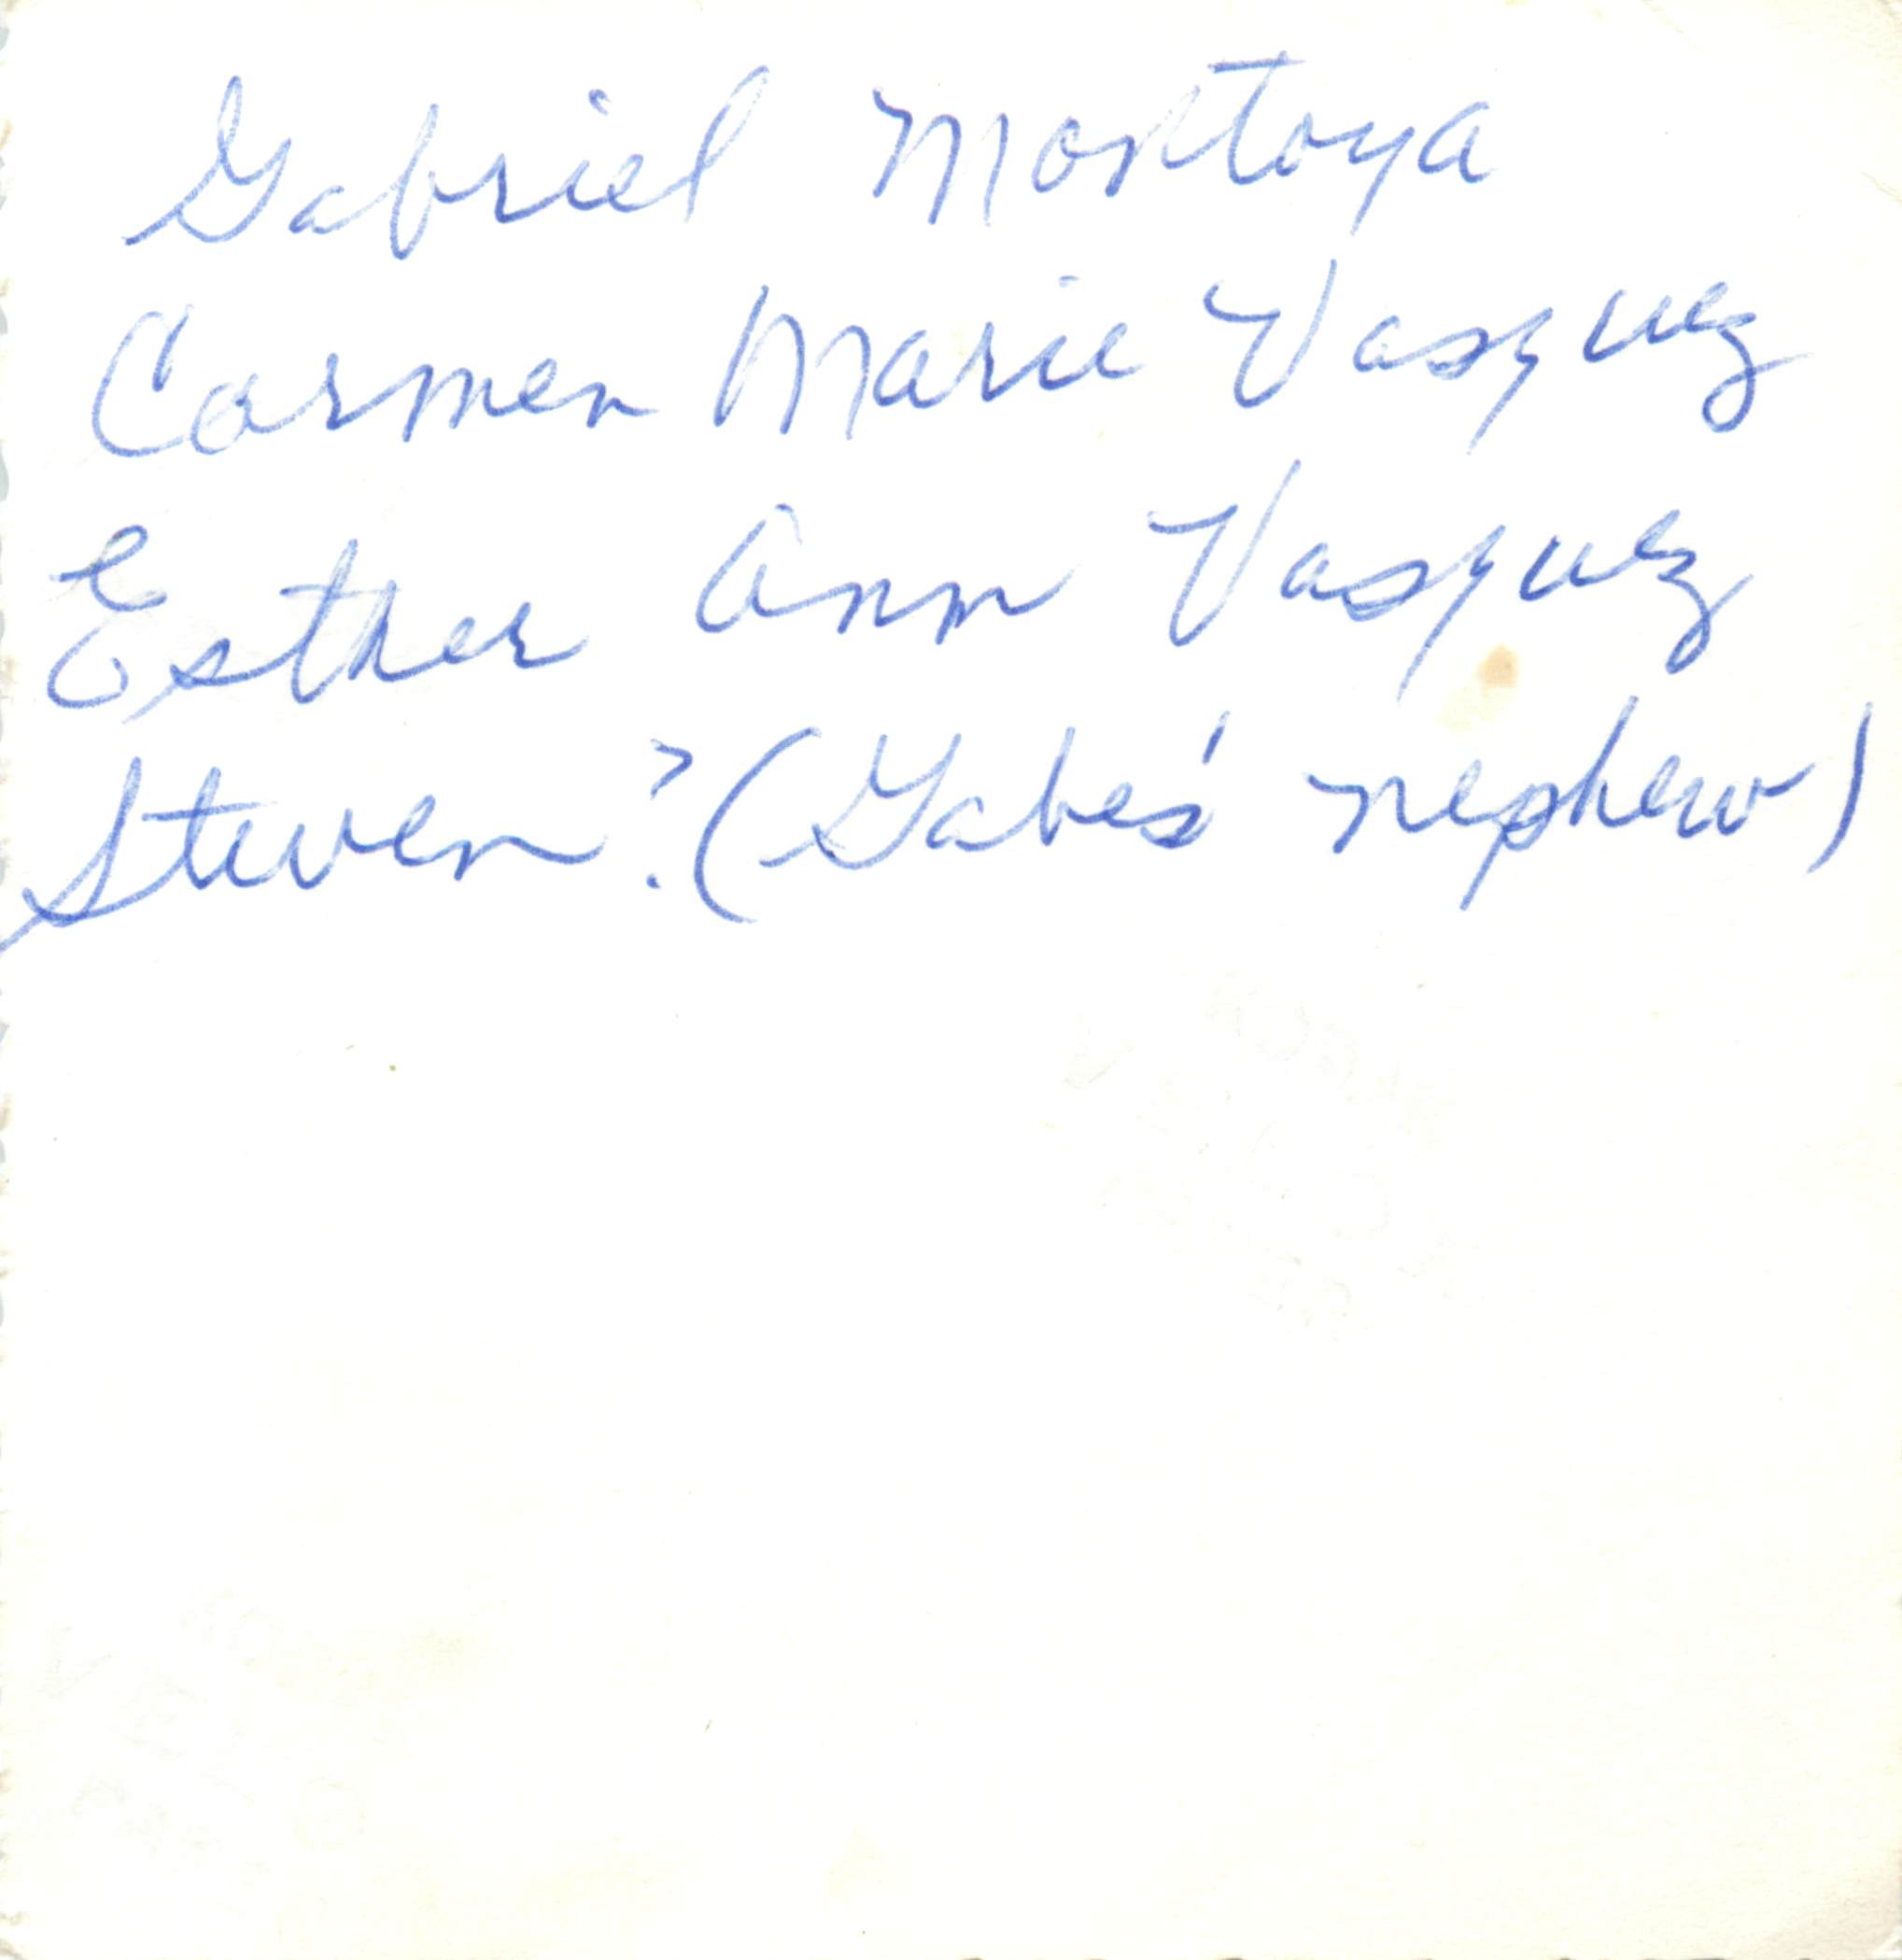 Gabriel Montoya
Carmen Marie Vasquez
Esther Ann Vasquez
Steven? (Gabes' nephew)